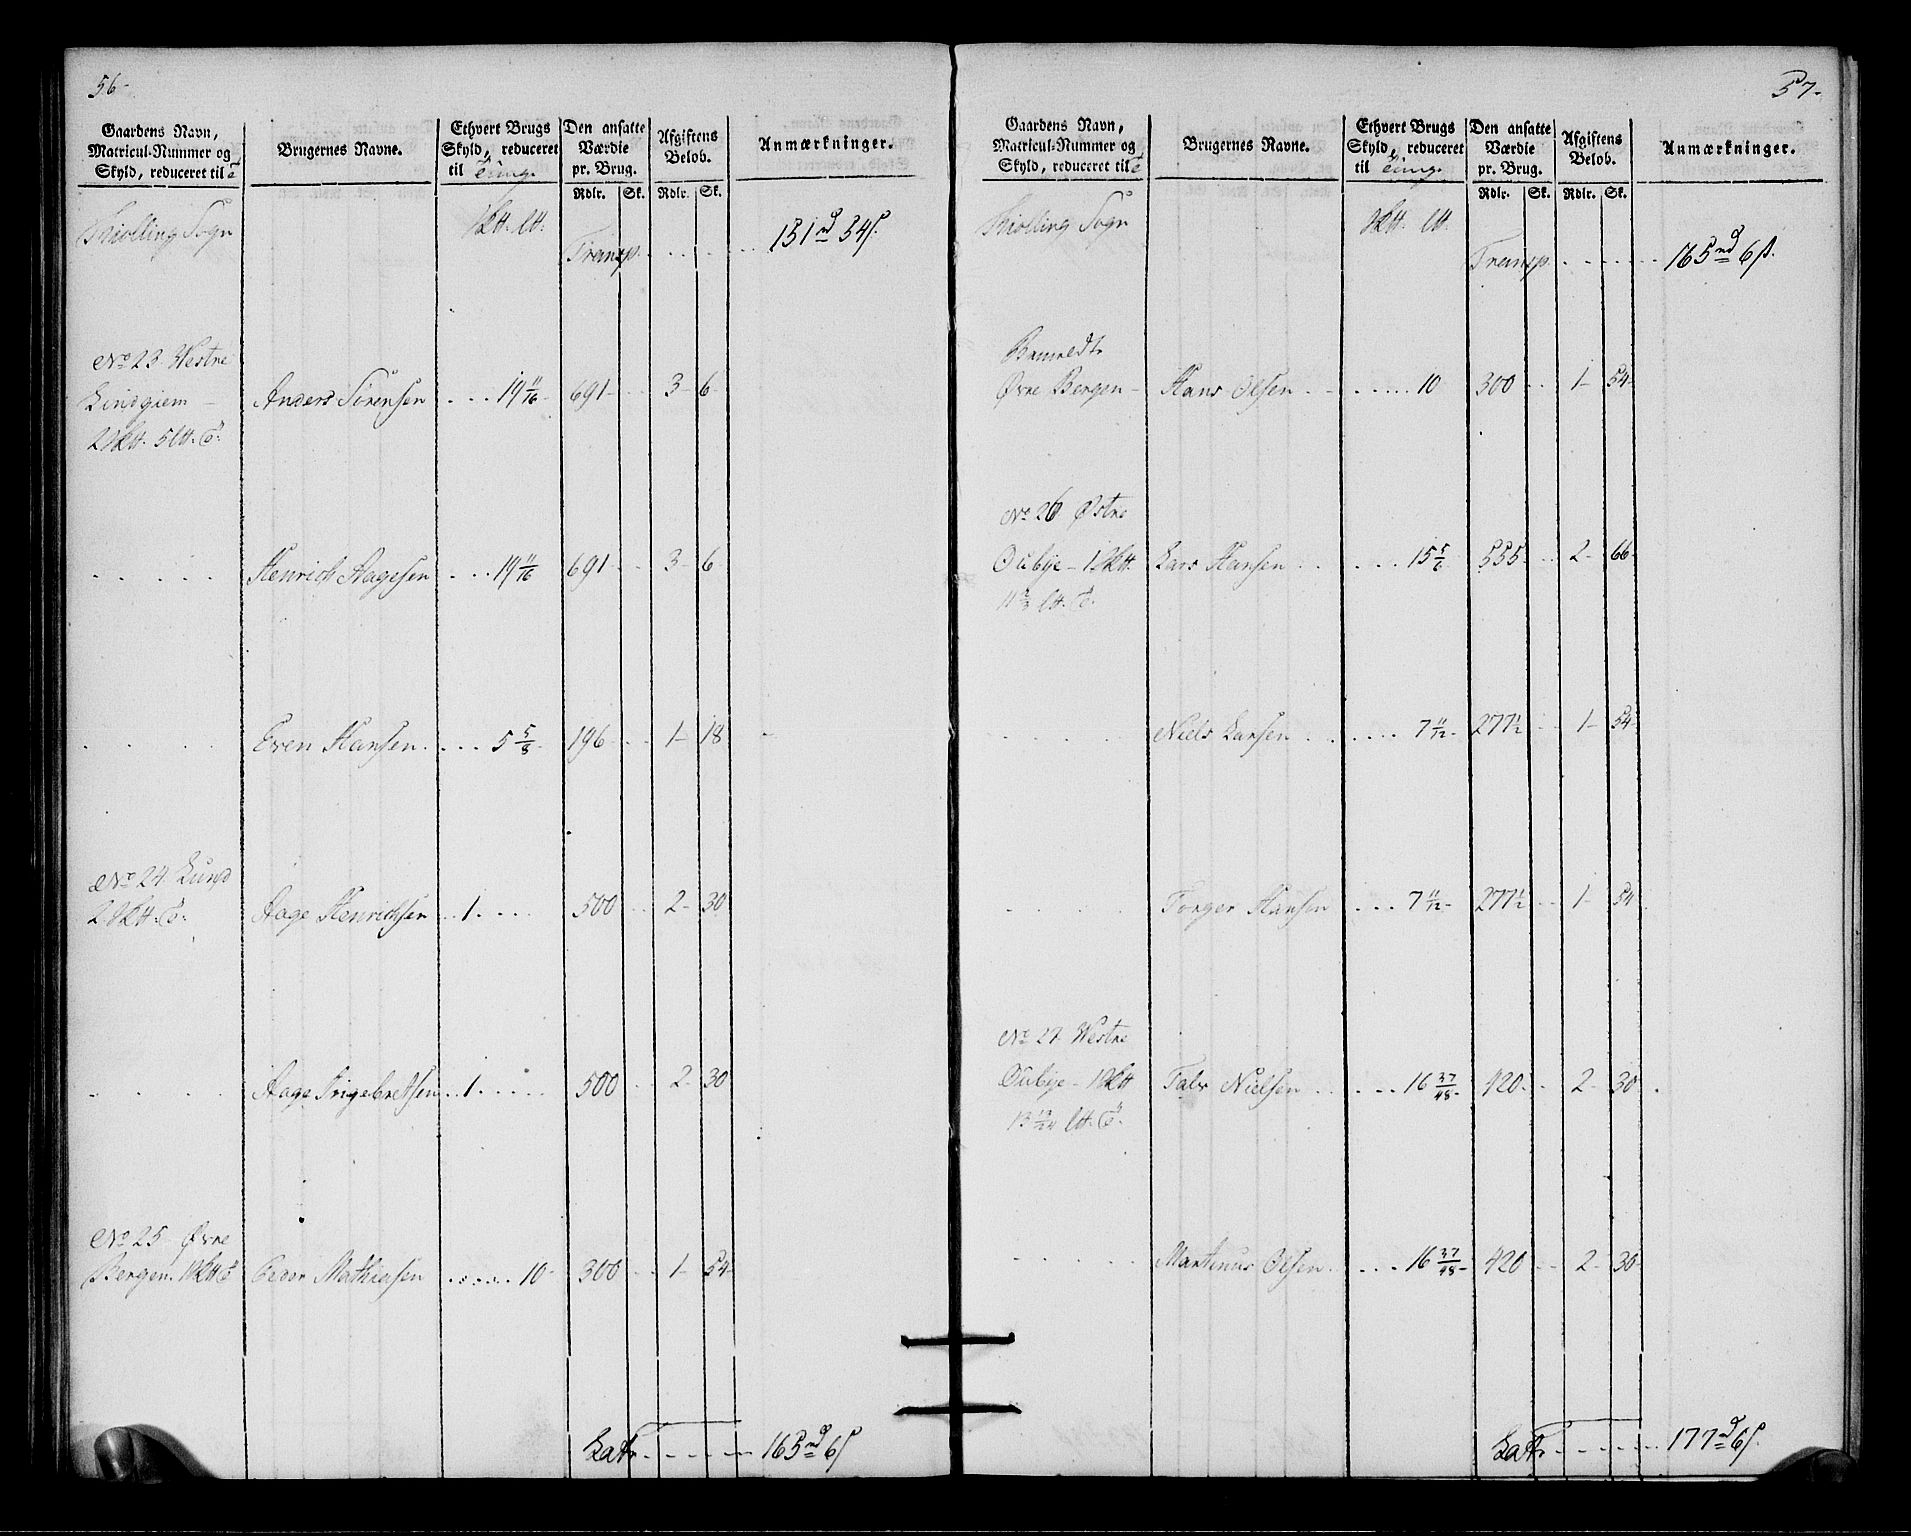 56-
Gaardens Navn,
Matricul-Nummer og
Skyld, reduceret til
Brugernes Navne.
Ethvert Brugs
Skyld, reduceret
til
Den ansatte
Værdie
pr. Brug.
Rdlr. Sk.
Afgiftens
Belob.
Rdlr. Sk.
Anmærkninger.
Skiolling Sogn
Transp. 151 rd 54 s.
No 23 Westre
Lindgiem
2 Skt. 5 lt.
Anders Sörensen 19 11/16 691 3 6
Henrich Aagesen 19 11/16 691 3 6
Even Hansen 5 5/8 196 1 18
No 24 Lund
2 Skt.
Aage Henrichsen 1 500 2 30
Aage Ingebretsen 1 500 2 30
No 25 Øvre
Bergen
Peder Mathiesen 10 300 1 54
Latr. 165 rd 6 s
57-
Gaardens Navn,
Matricul-Nummer og
Skyld, reduceret til
Brugernes Navne.
Ethvert Brugs
Skyld, reduceret
til
Den ansatte
Værdie
pr. Brug.
Rdlr. Sk.
Afgiftens
Belob.
Rdlr. Sk.
Anmærkninger.
Skiolling Sogn
Transp. 165 rd 6 s.
Bemeldte
Øvre Bergen Hans Olsen 10 300 1 54
No 26 Østre
Oubye 1 Skt. Lars Hansen 15 5/6 555 2 66
11 2/3 lt.
Niels Larsen 7 11/12 277 1/2 1 54
Torger Hansen 7 11/12 277 1/2 1 54
No 27 Westre
Oubye 1 Skt. Talv Nielsen 16 37/48 420 2 30
Marthinus Olsen 16 37/48 420 2 30
Latr. 177 rd 6 s.